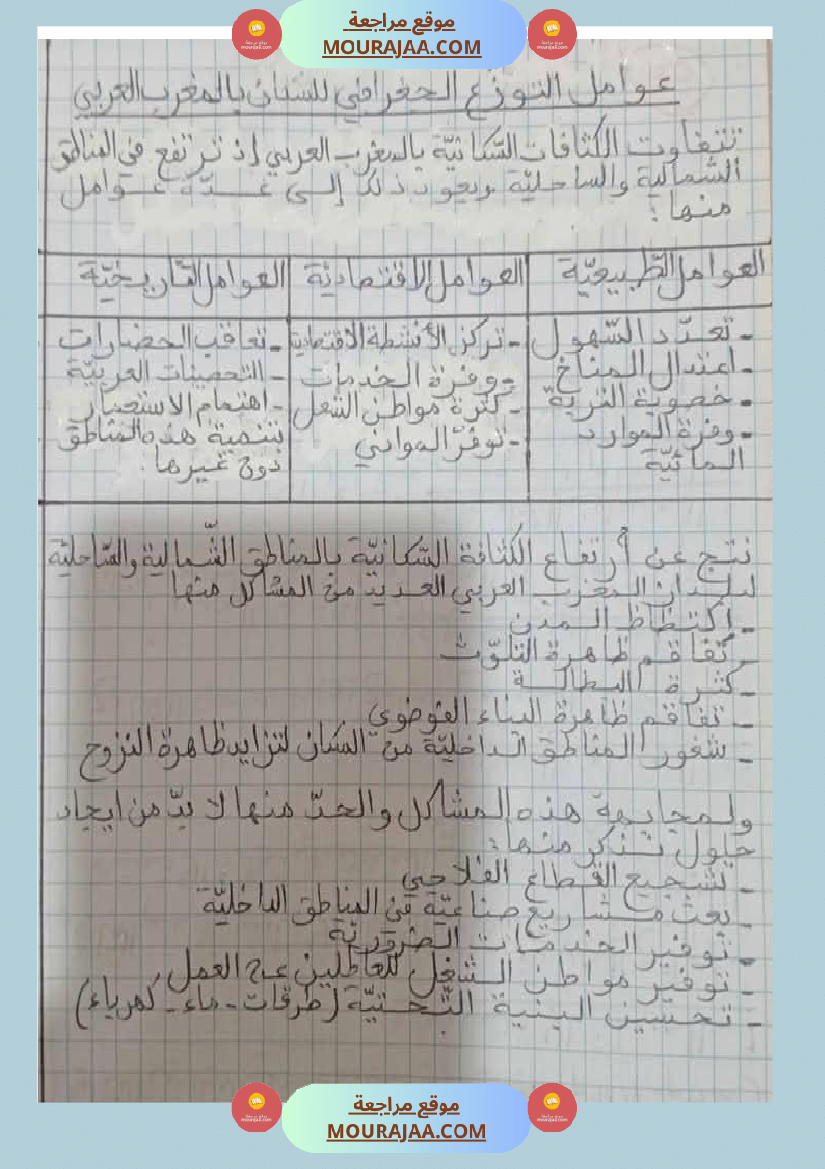 موقع مراجعة
MOURAJAA.COM
عوامل التوزع الجغرافي للسكان بالمغرب العربي
تتفاوت الكثافات السّكانيّة بالمغرب العربي إذ ترتفع في المناطق
الشمالية والساحليّة ويعود ذلك إلى عدّة عوامل
منها:
العوامل الطّبيعيّة
- تعدّد السّهول
- اعتدال المناخ
- خصوبة التربة
- وفرة الموارد
المائيّة
العوامل الاقتصاديّة
- تركّز الأنشطة الاقتصادية
- وفرة الخدمات
- كثرة مواطن الشغل
- توفّر الموانئ
العوامل التّاريخيّة
- تعاقب الحضارات
- التحصينات العربيّة
- اهتمام الاستعمار
بتنمية هذه المناطق
دون غيرها.
نتج عن أرتفاع الكثافة السّكانيّة بالمناطق الشّمالية والسّاحليّة
لبلدان المغرب العربي العديد من المشاكل منها
- إكتظاظ المدن
- تفاقم ظاهرة التلوّث
- كثرة البطالة
- تفاقم ظاهرة البناء الفوضوي
- شغور المناطق الداخليّة من السكان لتزايد ظاهرة النزوح
ولمجابهة هذه المشاكل والحدّ منها لا بدّ من ايجاد
حلول نذكر منها:
- تشجيع القطاع الفلاحي
- بعث مشاريع صناعيّة في المناطق الداخليّة
- توفير الخدمات الضروريّة
- توفير مواطن الشغل للعاطلين عن العمل
- تحسين البنية التّحتيّة (طرقات - ماء - كهرباء)
موقع مراجعة
MOURAJAA.COM